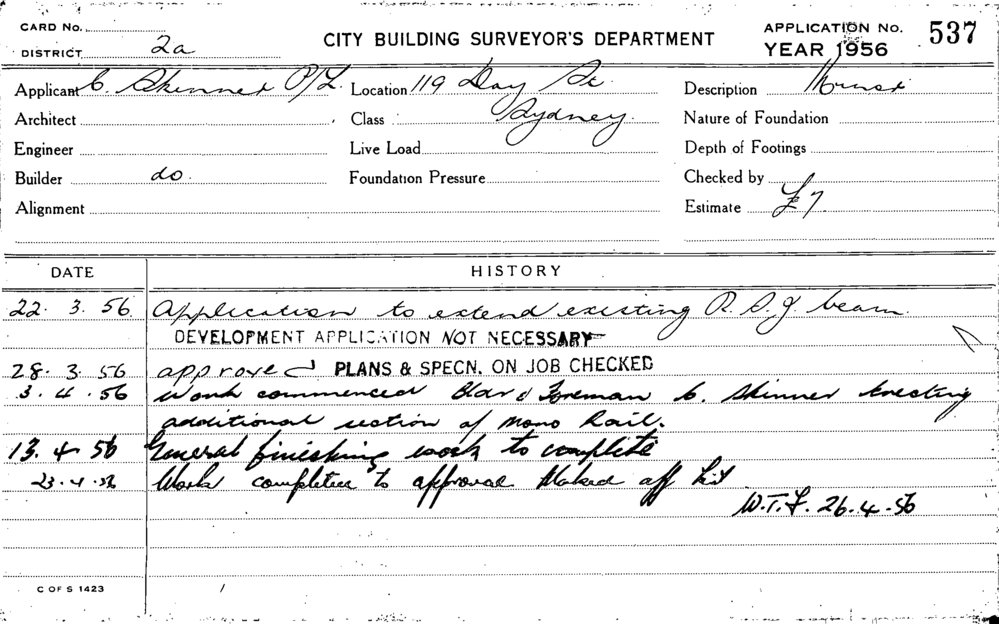 CARD No.
DISTRICT 2a
CITY BUILDING SURVEYOR'S DEPARTMENT
APPLICATION No. 537
YEAR 1956
Applicant C. Skinner P/L.
Location 119 Day St
Description
Architect
Class Sydney.
Nature of Foundation
Engineer
Live Load
Depth of Footings
Builder do.
Foundation Pressure
Checked by
Alignment
Estimate £7
DATE HISTORY
22. 3. 56. Application to extend existing R.S.J. beam.
DEVELOPMENT APPLICATION NOT NECESSARY
28. 3. 56 approved PLANS & SPECN. ON JOB CHECKED
3. 4. 56 Work commenced Bldr & Foreman C. Skinner Erecting
additional section of Mono Rail.
13. 4 56 General finishing work to complete
23.4.56 Work completed to approval Marked off
W.T.F. 26.4.56
C OF S 1423